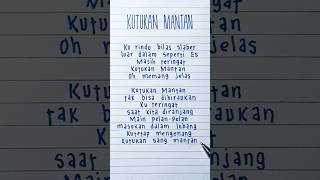 KUTUKAN MANTAN
Ku rindu bilas slaber
luar dalam seperti Es
Masih teringat
Kutukan Mantan
Oh memang jelas
Kutukan Mantan
tak bisa dihiraukan
Ku teringat
saat kita diranjang
Main pelan-pelan
masukan dalam lobang
Kutetap mengenang
Kutukan sang mantan